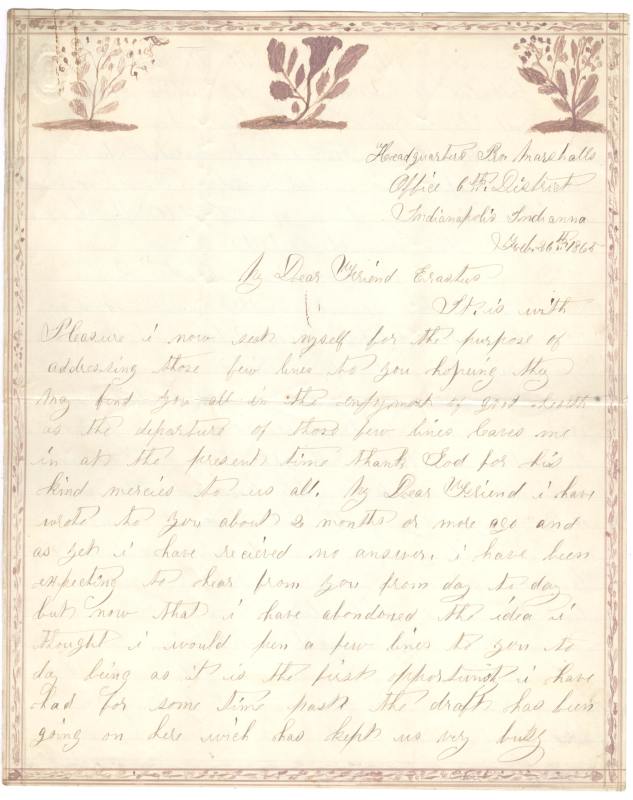 Headquarters Pro Marshalls
Office 6th. District
Indianapolis Indianna
Feb. 16th. 1865
My Dear Friend Erastus
It. is with
Pleasure i now seat myself for the purpose of
addressing those few lines to you hopeing they
May find you all in the enjoyment of good health
as the departure of those few lines leaves me
in at the present time thank God for his
kind mercies to us all. My Dear Friend i have
wrote to you about 2 months or more ago and
as yet i have recieved no answer. i have been
expecting to hear from you from day to day
but now that i have abondoned the idea i
thought i would pen a few lines to you to
day being as it is the first opportunity i have
had for some time past the draft has been
going on here wich has kept us very busy